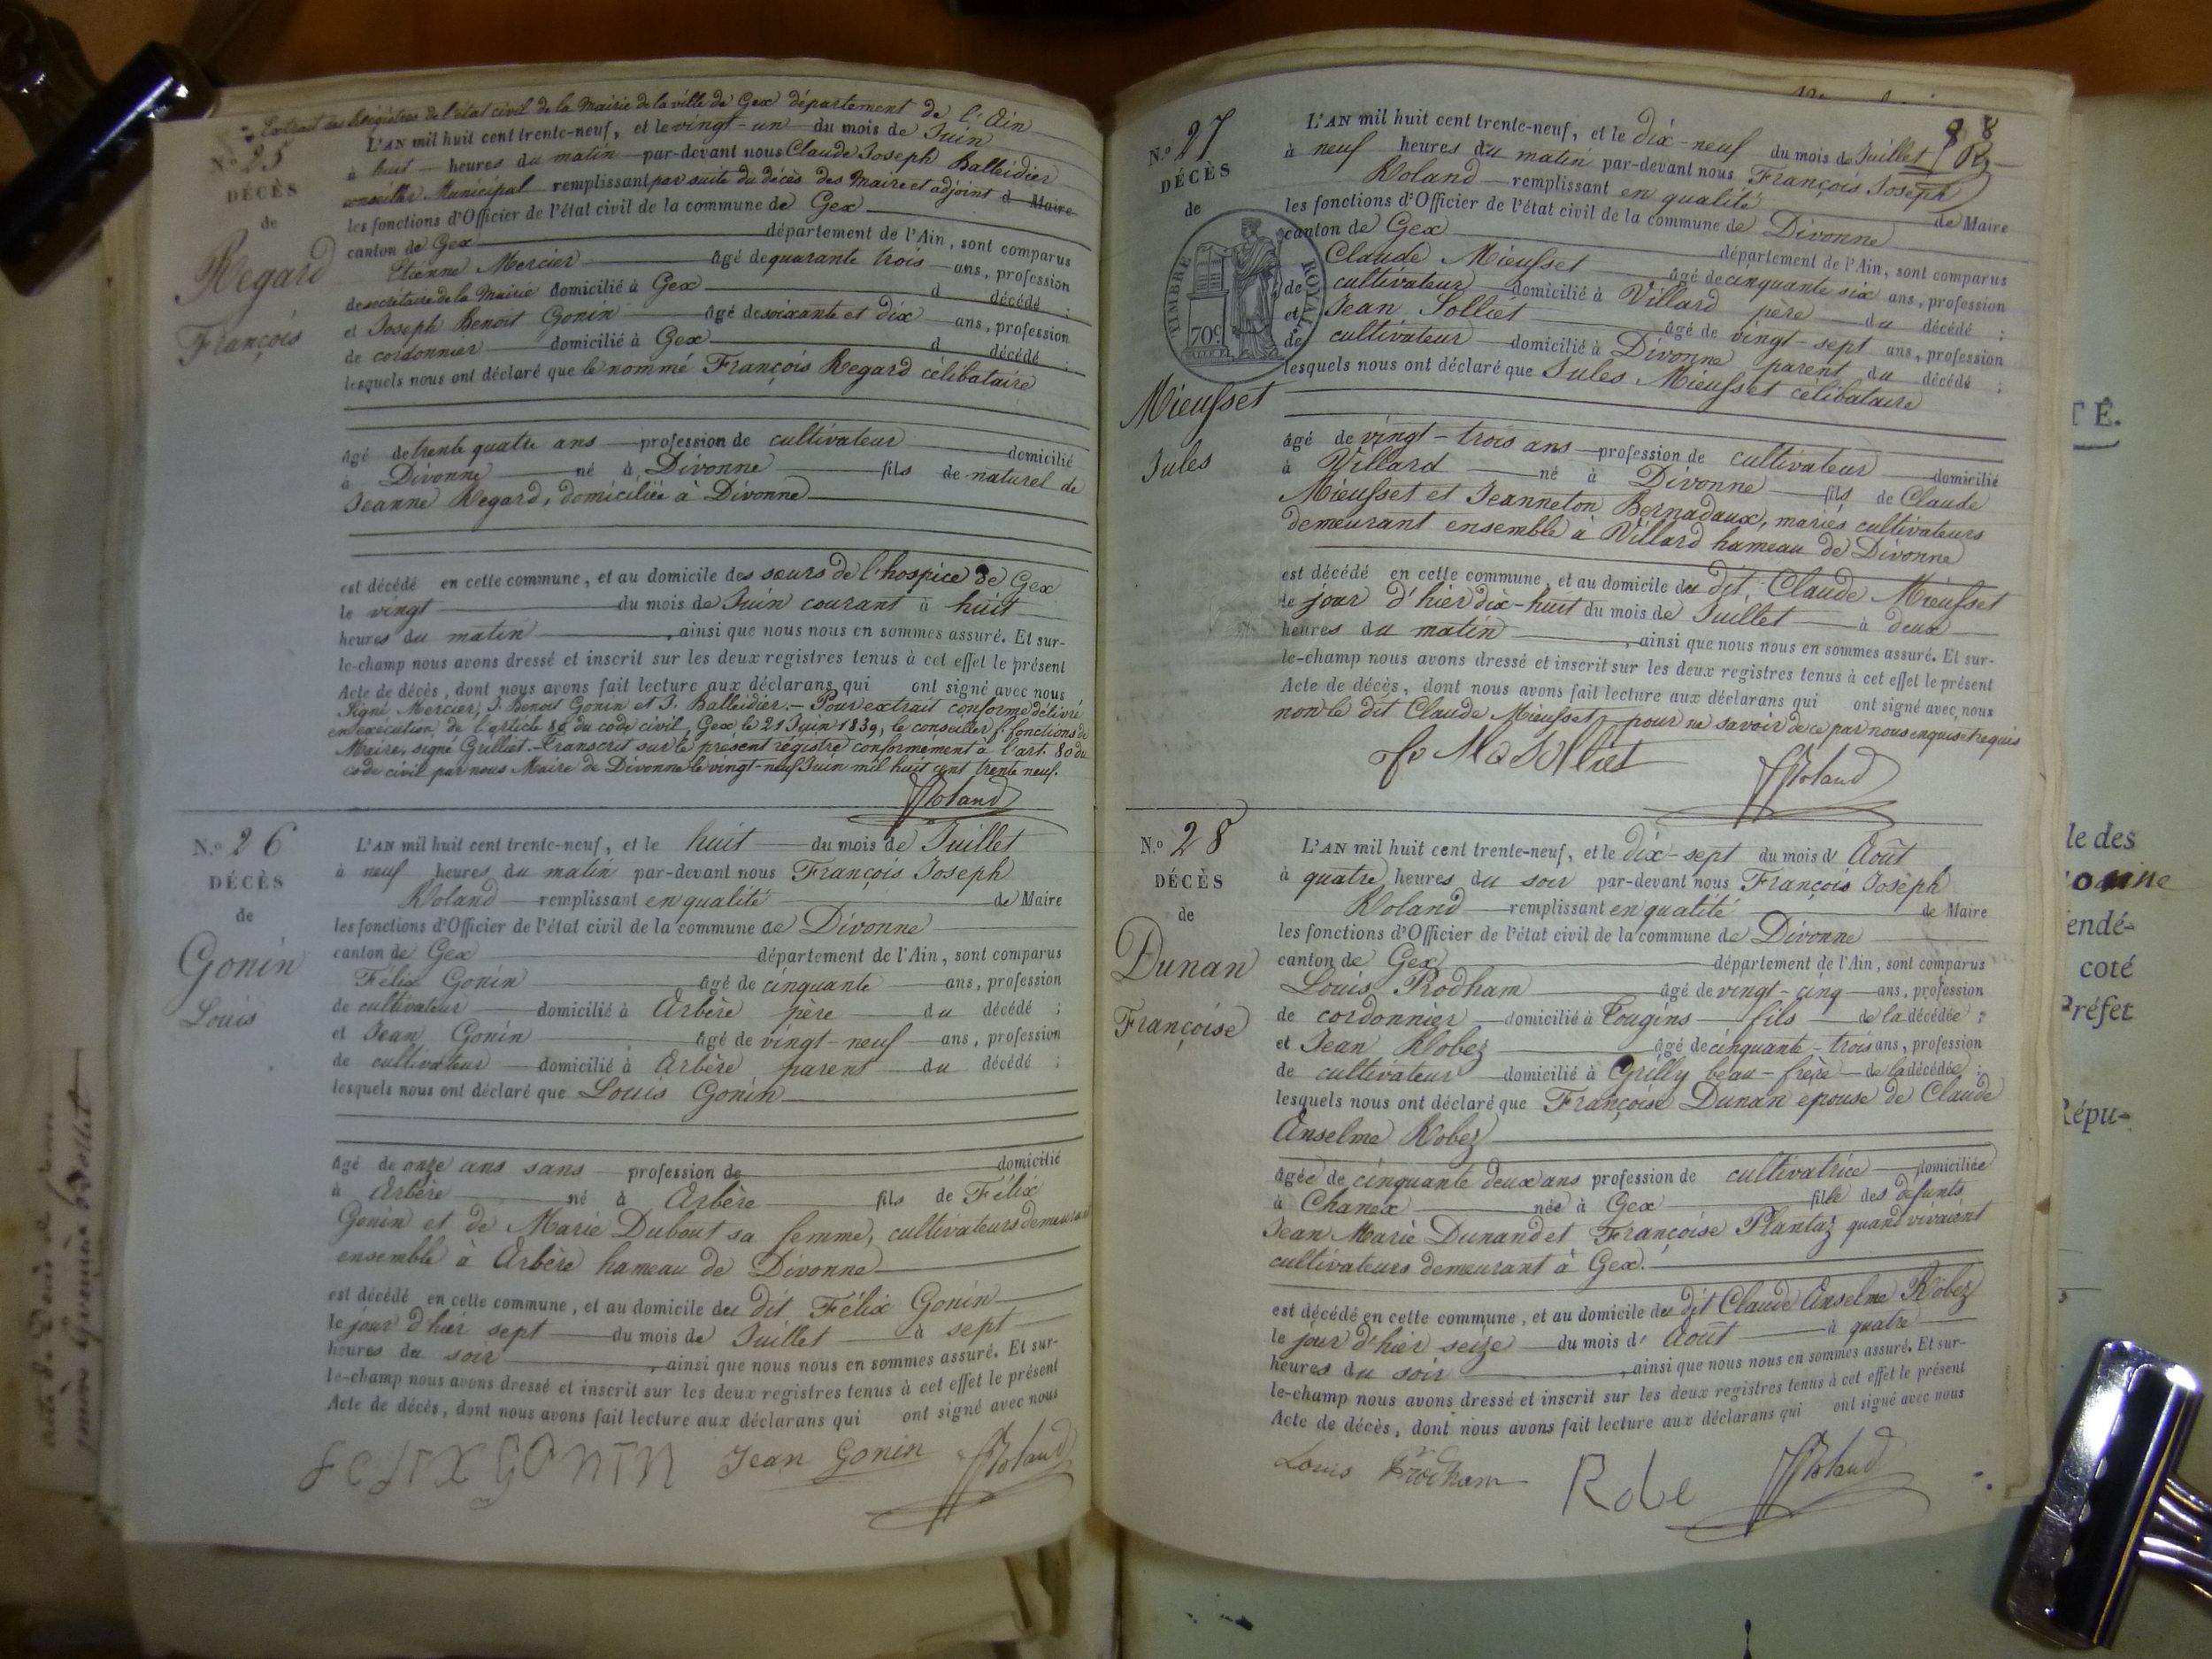 Extrait des Régistres de l'état civil de la Mairie de la ville de Gex département de l'Ain
N.o 25
DÉCÈS
de
Regard
François
L'AN mil huit cent trente-neuf, et le vingt-un du mois de Juin
à huit heures du matin par-devant nous Claude Joseph Balleidier
conseiller Municipal remplissant par suite du décès des Maire et adjoint d Maire
les fonctions d'Officier de l'état civil de la commune de Gex
canton de Gex département de l'Ain, sont comparus
Etienne Mercier âgé de quarante trois ans, profession
de secrétaire de la Mairie domicilié à Gex d décédé ;
et Joseph Benoit Gonin âgé de soixante et dix ans, profession
de cordonnier domicilié à Gex d décédé ;
lesquels nous ont déclaré que le nommé François Regard célibataire
âgé de trente quatre ans profession de cultivateur domicilié
à Divonne né à Divonne fils de naturel de
Jeanne Regard, domiciliée à Divonne
est décédé en cette commune, et au domicile des sœurs de l'hospice de Gex
le vingt du mois de Juin courant à huit
heures du matin, ainsi que nous nous en sommes assuré. Et sur-
le-champ nous avons dressé et inscrit sur les deux registres tenus à cet effet le présent
Acte de décès, dont nous avons fait lecture aux déclarans qui ont signé avec nous
Signé Mercier, J. Benoit Gonin et J. Balleidier.- Pour extrait conforme délivré
en exécution de l'article 80 du code civil, Gex, le 21 Juin 1839, le conseiller f. fonctions de
Maire, signé Grilliet. Transcrit sur le présent registre conformément à l'art. 80 du
code civil par nous Maire de Divonne le vingt-neuf Juin mil huit cent trente neuf.
Roland
N.o 26
DÉCÈS
de
Gonin
Louis
L'AN mil huit cent trente-neuf, et le huit du mois de Juillet
à neuf heures du matin par-devant nous François Joseph
Roland remplissant en qualité de Maire
les fonctions d'Officier de l'état civil de la commune de Divonne
canton de Gex département de l'Ain, sont comparus
Félix Gonin âgé de cinquante ans, profession
de cultivateur domicilié à Arbère père du décédé ;
et Jean Gonin âgé de vingt-neuf ans, profession
de cultivateur domicilié à Arbère parent du décédé ;
lesquels nous ont déclaré que Louis Gonin
âgé de onze ans sans profession de domicilié
à Arbère né à Arbère fils de Félix
Gonin et de Marie Dubout sa femme, cultivateurs demeurant
ensemble à Arbère hameau de Divonne
est décédé en cette commune, et au domicile du dit Félix Gonin
le jour d'hier sept du mois de Juillet à sept
heures du soir, ainsi que nous nous en sommes assuré. Et sur-
le-champ nous avons dressé et inscrit sur les deux registres tenus à cet effet le présent
Acte de décès, dont nous avons fait lecture aux déclarans qui ont signé avec nous
FELIX GONIN Jean Gonin Roland
N.o 27
DÉCÈS
de
TIMBRE ROYAL
70c
Mieusset
Jules
28
L'AN mil huit cent trente-neuf, et le dix-neuf du mois de Juillet
à neuf heures du matin par-devant nous François Joseph
Roland remplissant en qualité de Maire
les fonctions d'Officier de l'état civil de la commune de Divonne
canton de Gex département de l'Ain, sont comparus
Claude Mieusset âgé de cinquante six ans, profession
de cultivateur domicilié à Villard père du décédé ;
et Jean Solliet âgé de vingt-sept ans, profession
de cultivateur domicilié à Divonne parent du décédé ;
lesquels nous ont déclaré que Jules Mieusset célibataire
âgé de vingt-trois ans profession de cultivateur domicilié
à Villard né à Divonne fils de Claude
Mieusset et Jeanneton Bernadaux, mariés cultivateurs
demeurant ensemble à Villard hameau de Divonne
est décédé en cette commune, et au domicile du dit, Claude Mieusset
le jour d'hier dix-huit du mois de Juillet à deux
heures du matin, ainsi que nous nous en sommes assuré. Et sur-
le-champ nous avons dressé et inscrit sur les deux registres tenus à cet effet le présent
Acte de décès, dont nous avons fait lecture aux déclarans qui ont signé avec nous
non le dit Claude Mieusset pour ne savoir de ce par nous enquis et requis
Solliet Roland
N.o 28
DÉCÈS
de
Dunan
Françoise
L'AN mil huit cent trente-neuf, et le dix-sept du mois d' Août
à quatre heures du soir par-devant nous François Joseph
Roland remplissant en qualité de Maire
les fonctions d'Officier de l'état civil de la commune de Divonne
canton de Gex département de l'Ain, sont comparus
Louis Prodham âgé de vingt-cinq ans, profession
de cordonnier domicilié à Tougins fils de la décédée ;
et Jean Robez âgé de cinquante-trois ans, profession
de cultivateur domicilié à Grilly beau-frère de la décédée ;
lesquels nous ont déclaré que Françoise Dunan epouse de Claude
Anselme Robez
âgée de cinquante deux ans profession de cultivatrice domiciliée
à Chanex née à Gex fille des défunts
Jean Marie Dunand et Françoise Plantaz quand vivaient
cultivateurs demeurant à Gex.
est décédé en cette commune, et au domicile du dit Claude Anselme Robez
le jour d'hier seize du mois d' Août à quatre
heures du soir, ainsi que nous nous en sommes assuré. Et sur-
le-champ nous avons dressé et inscrit sur les deux registres tenus à cet effet le présent
Acte de décès, dont nous avons fait lecture aux déclarans qui ont signé avec nous
Louis Prodham Robe Roland
TÉ.
le des
onne
endé-
coté
Préfet
Répu-